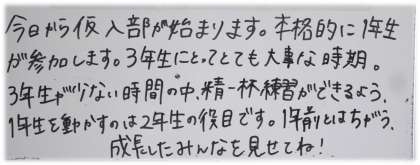 今日から仮入部が始まります。本格的に1年生
が参加します。3年生にとってとても大事な時期。
3年生が少ない時間の中、精一杯練習ができるよう、
1年生を動かすのは2年生の役目です。1年前とはちがう、
成長したみんなを見せてね!